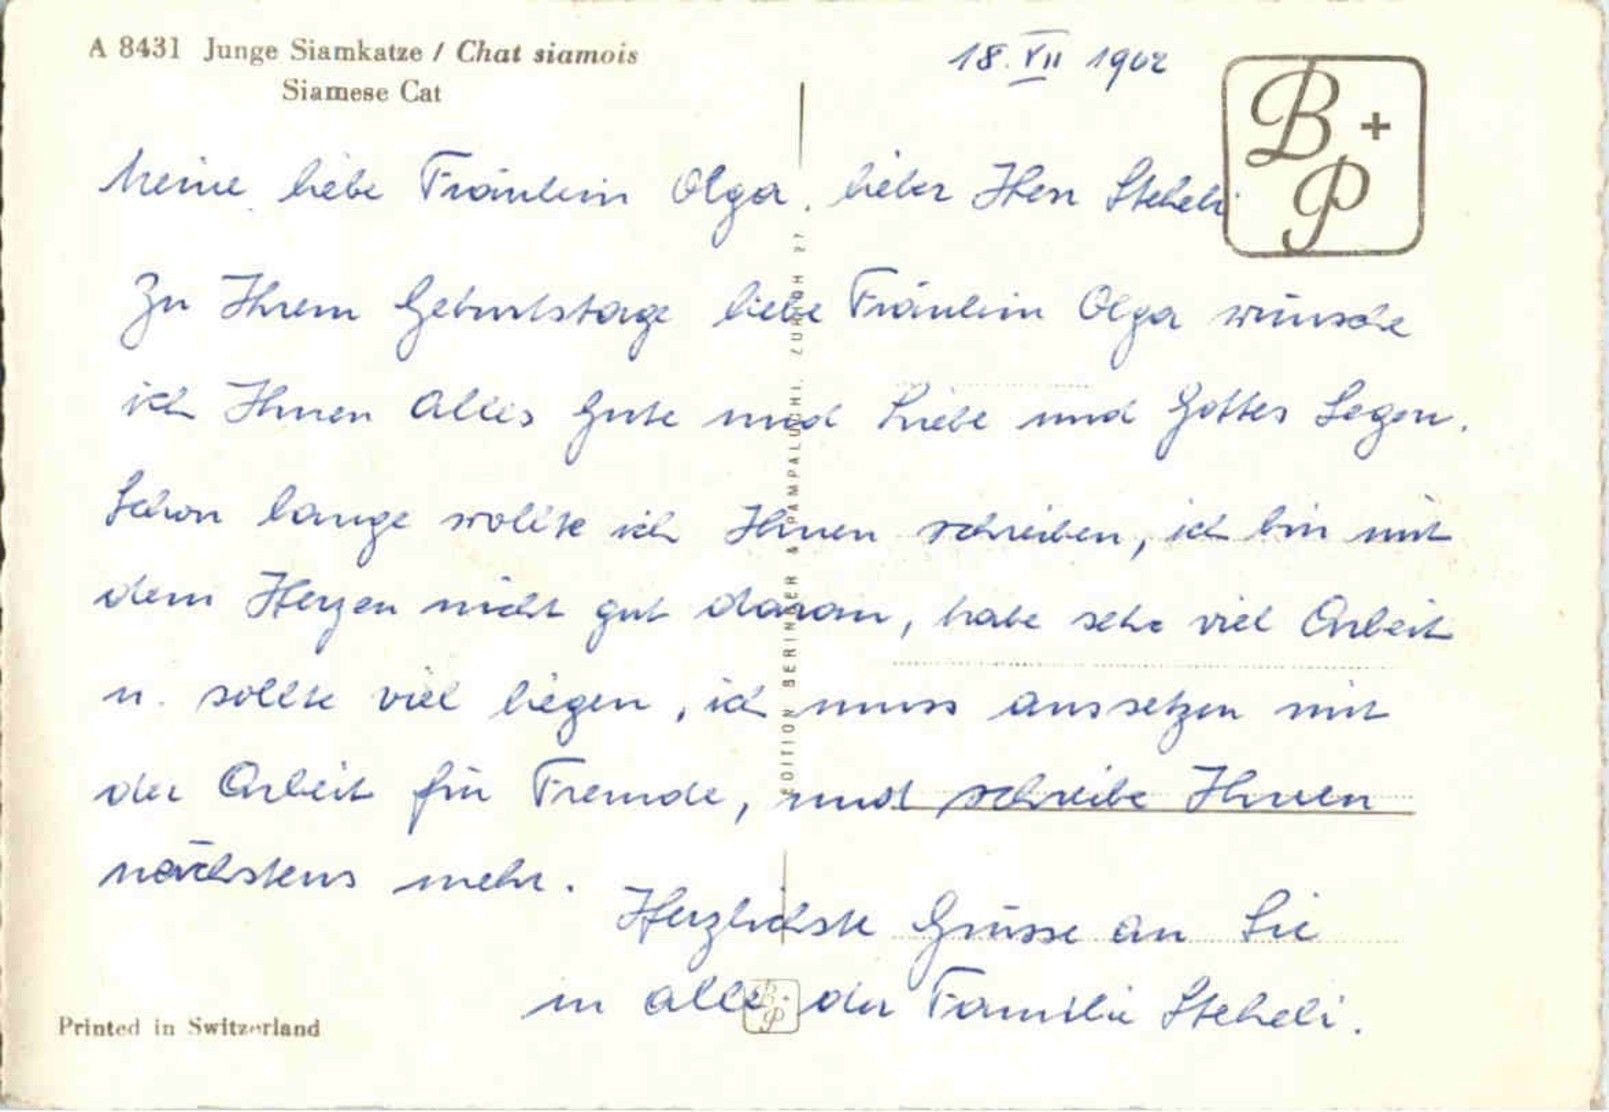 A 8431 Junge Siamkatze / Chat siamois
Siamese Cat
18. VII 1962
B + P
Meine liebe Fräulein Olga, lieber Herr Steheli
Zu Ihrem Geburtstage liebe Fräulein Olga wünsche
ich Ihnen Alles Gute und Liebe und Gottes Segen.
Schon lange wollte ich Ihnen schreiben, ich bin mit
dem Herzen nicht gut daran, habe sehr viel Arbeit
u. sollte viel liegen, ich muss aussetzen mit
der Arbeit für Fremde, und schreibe Ihnen
nächstens mehr.
Herzlichste Grüsse an Sie
u alle der Familie Steheli.
EDITION BERINGER & PAMPALUCHI, ZÜRICH 27
B + P
Printed in Switzerland